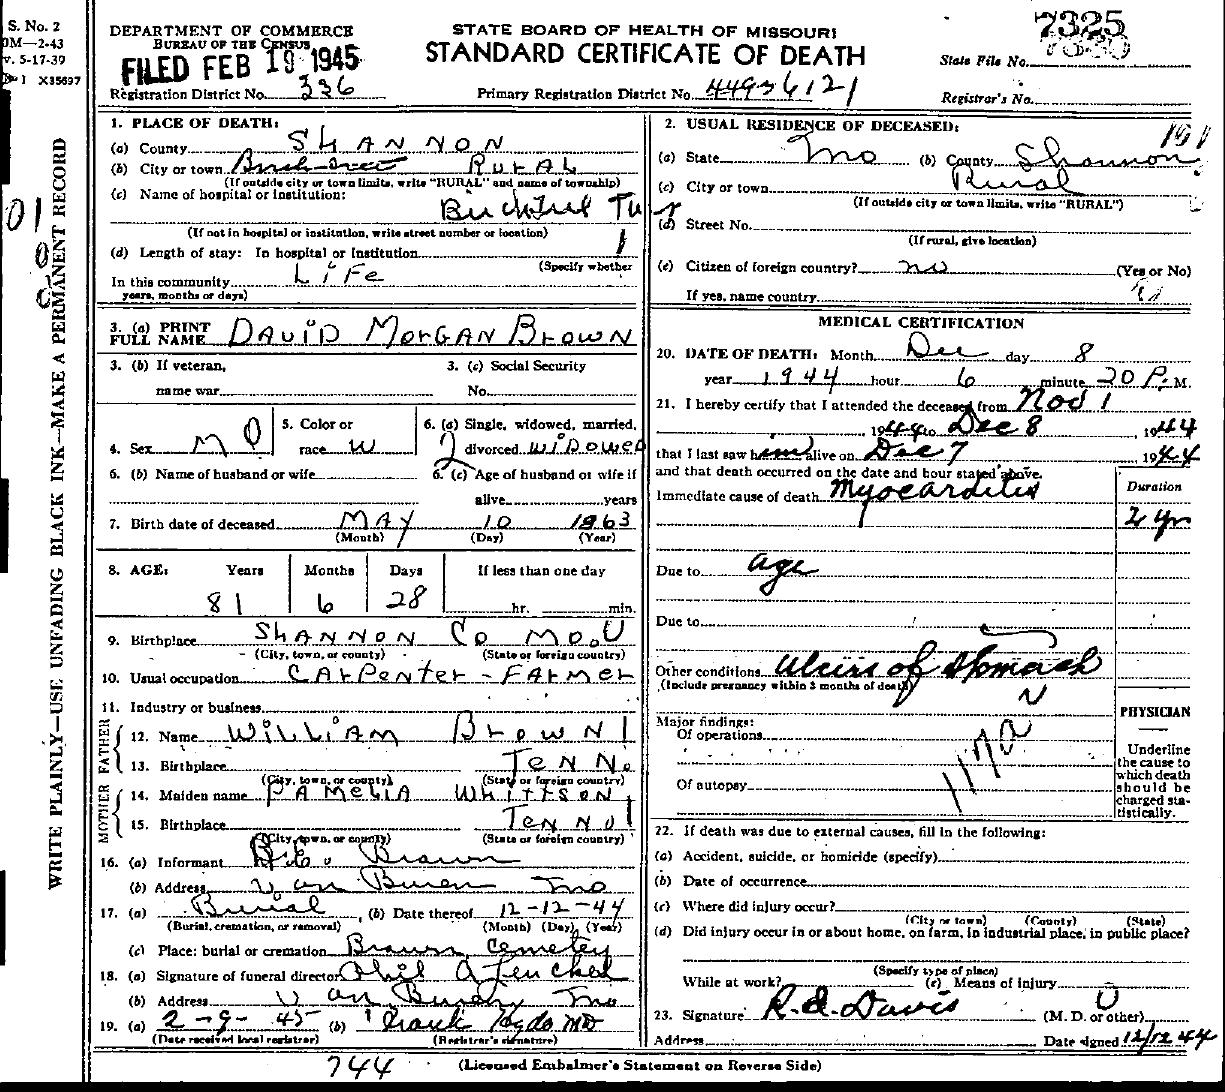 S. No. 2
0M—2-43
v. 5-17-39
X35697
WRITE PLAINLY—USE UNFADING BLACK INK—MAKE A PERMANENT RECORD
DEPARTMENT OF COMMERCE
BUREAU OF THE CENSUS
FILED FEB 19 1945
STATE BOARD OF HEALTH OF MISSOURI
STANDARD CERTIFICATE OF DEATH
7325
State File No.
Registration District No. 336
Primary Registration District No. 4493 6121
Registrar's No.
1. PLACE OF DEATH:
(a) County SHANNON
(b) City or town Birch tree RURAL
(If outside city or town limits, write "RURAL" and name of township)
(c) Name of hospital or institution:
Birchtree Tu
(If not in hospital or institution, write street number or location)
(d) Length of stay: In hospital or institution
(Specify whether
In this community LIFe
years, months or days)
2. USUAL RESIDENCE OF DECEASED:
(a) State Mo (b) County Shannon
(c) City or town Rural
(If outside city or town limits, write "RURAL")
(d) Street No.
(If rural, give location)
(e) Citizen of foreign country? no (Yes or No)
If yes, name country
3. (a) PRINT FULL NAME DAVID MOrGAN BrOWN
3. (b) If veteran,
name war
3. (c) Social Security
No.
4. Sex M
5. Color or race W
6. (a) Single, widowed, married,
divorced WIDOWED
6. (b) Name of husband or wife
6. (c) Age of husband or wife if
alive years
7. Birth date of deceased MAY 10 1863
(Month) (Day) (Year)
8. AGE: Years Months Days If less than one day
81 6 28 hr. min.
9. Birthplace SHANNON Co MO.
(City, town, or county) (State or foreign country)
10. Usual occupation CArPenter - FArmer
11. Industry or business
FATHER
12. Name WILLIAM BrOWN
13. Birthplace TeNN
(City, town, or county) (State or foreign country)
MOTHER
14. Maiden name PAMELIA WHITTSON
15. Birthplace TeNN
(City, town, or county) (State or foreign country)
16. (a) Informant Brown
(b) Address Van Buren Mo
17. (a) Burial , (b) Date thereof 12-12-44
(Burial, cremation, or removal) (Month) (Day) (Year)
(c) Place: burial or cremation Brown Cemetery
18. (a) Signature of funeral director
(b) Address Van Buren Mo
19. (a) 2-9-45 (b) Frank Hyde MD
(Date received local registrar) (Registrar's signature)
MEDICAL CERTIFICATION
20. DATE OF DEATH: Month Dec day 8
year 1944 hour 6 minute 20 P. M.
21. I hereby certify that I attended the deceased from Nov 1
, 1944 to Dec 8 , 1944
that I last saw him alive on Dec 7 1944
and that death occurred on the date and hour stated above.
Immediate cause of death Myocarditis
Duration
2 yrs
Due to age
Due to
Other conditions Ulcers of Stomach
(Include pregnancy within 3 months of death)
Major findings:
Of operations
Of autopsy
117a
PHYSICIAN
Underline
the cause to
which death
should be
charged sta-
tistically.
22. If death was due to external causes, fill in the following:
(a) Accident, suicide, or homicide (specify)
(b) Date of occurrence
(c) Where did injury occur?
(City or town) (County) (State)
(d) Did injury occur in or about home, on farm, in industrial place, in public place?
(Specify type of place)
While at work? (e) Means of injury
23. Signature R. D. Davis (M. D. or other)
Address Date signed 12/12 44
744
(Licensed Embalmer's Statement on Reverse Side)